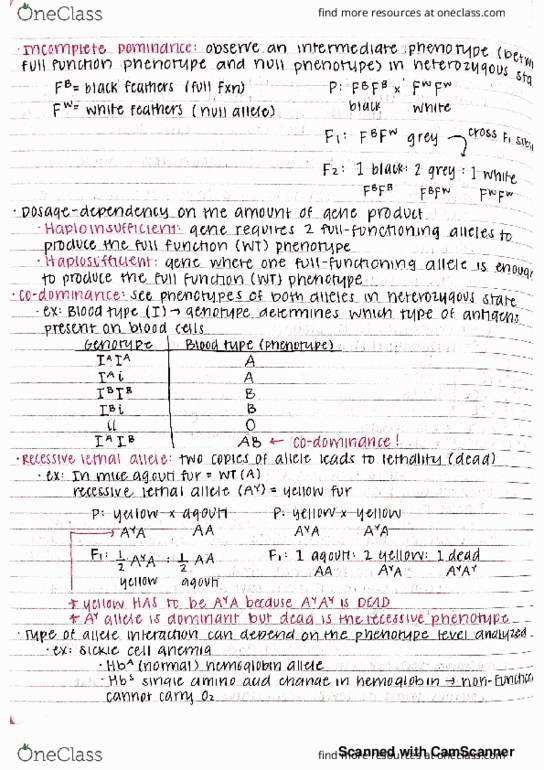 OneClass
find more resources at oneclass.com
· Incomplete Dominance: observe an intermediate phenotype (betw
full function phenotype and null phenotype) in heterozygous sta
Fᴮ= black feathers (full fxn)
P: FᴮFᴮ × FʷFʷ
Fʷ= white feathers (null allele)
black white
F₁: FᴮFʷ grey
cross F₁
F₂: 1 black: 2 grey : 1 white
FᴮFᴮ FᴮFʷ FʷFʷ
· Dosage-dependency on the amount of gene product
· Haploinsufficient: gene requires 2 full-functioning alleles to
produce the full function (WT) phenotype
· Haplosufficient: gene where one full-functioning allele is enoug
to produce the full function (WT) phenotype
· co-dominance: see phenotypes of both alleles in heterozygous state
· ex: Blood type (I) → genotype determines which type of antigens
present on blood cells
Genotype Blood type (phenotype)
IᴬIᴬ A
Iᴬi A
IᴮIᴮ B
Iᴮi B
ii O
IᴬIᴮ AB ← co-dominance!
· Recessive lethal allele: two copies of allele leads to lethality (dead)
· ex: In mice agouti fur = WT (A)
recessive lethal allele (Aʸ) = yellow fur
P: yellow × agouti P: yellow × yellow
AʸA AA AʸA AʸA
F₁: 1/2 AʸA : 1/2 AA F₁: 1 agouti: 2 yellow: 1 dead
yellow agouti AA AʸA AʸAʸ
* yellow HAS to be AʸA because AʸAʸ is DEAD
* Aʸ allele is dominant but dead is the recessive phenotype
· Type of allele interaction can depend on the phenotype level analyzed.
· ex: sickle cell anemia
· Hbᴬ (normal) hemoglobin allele
· Hbˢ single amino acid change in hemoglobin → non-function
cannot carry O₂
OneClass
find more resources at oneclass.com
Scanned with CamScanner